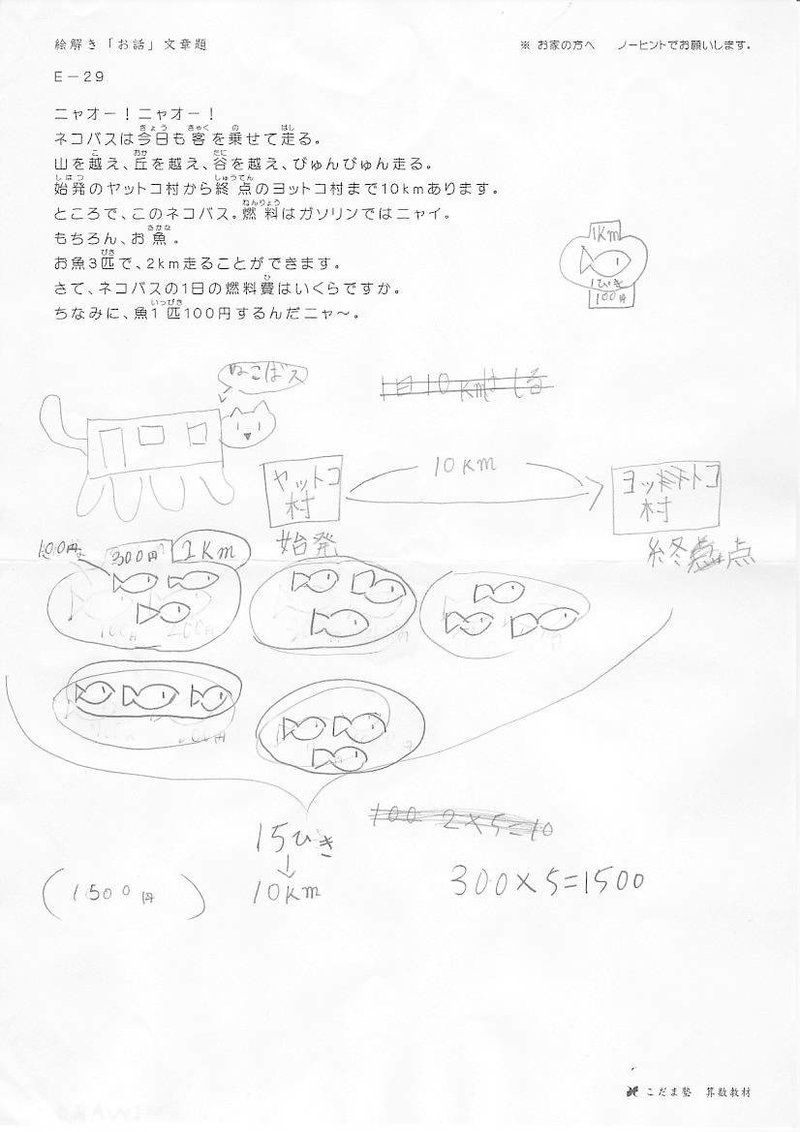 絵解き「お話」文章題
※ お家の方へ ノーヒントでお願いします。
E－29
ニャオー！ニャオー！
ネコバスは今日も客を乗せて走る。
山を越え、丘を越え、谷を越え、びゅんびゅん走る。
始発のヤットコ村から終点のヨットコ村まで10kmあります。
ところで、このネコバス。燃料はガソリンではニャイ。
もちろん、お魚。
お魚3匹で、2km走ることができます。
さて、ネコバスの1日の燃料費はいくらですか。
ちなみに、魚1匹100円するんだニャ～。
1Km
1ぴき
100円
ねこばス
1日10Kmはしる
ヤットコ
村
10Km
ヨットコ
村
始発
終点
100円
300円
1Km
15ひき
↓
10Km
100 2×5=10
300×5=1500
(1500円)
こだま塾 算数教材